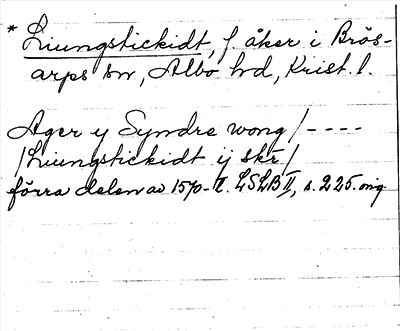 * Liungstickidt, f. åker i Brös-
arps sn, Albo hd, Krist. l.
Ager y Syndre wong / - - - -
/ Liungstickidt ij skr /
förra delen av 1570-t. LSLB II, s. 225. orig.